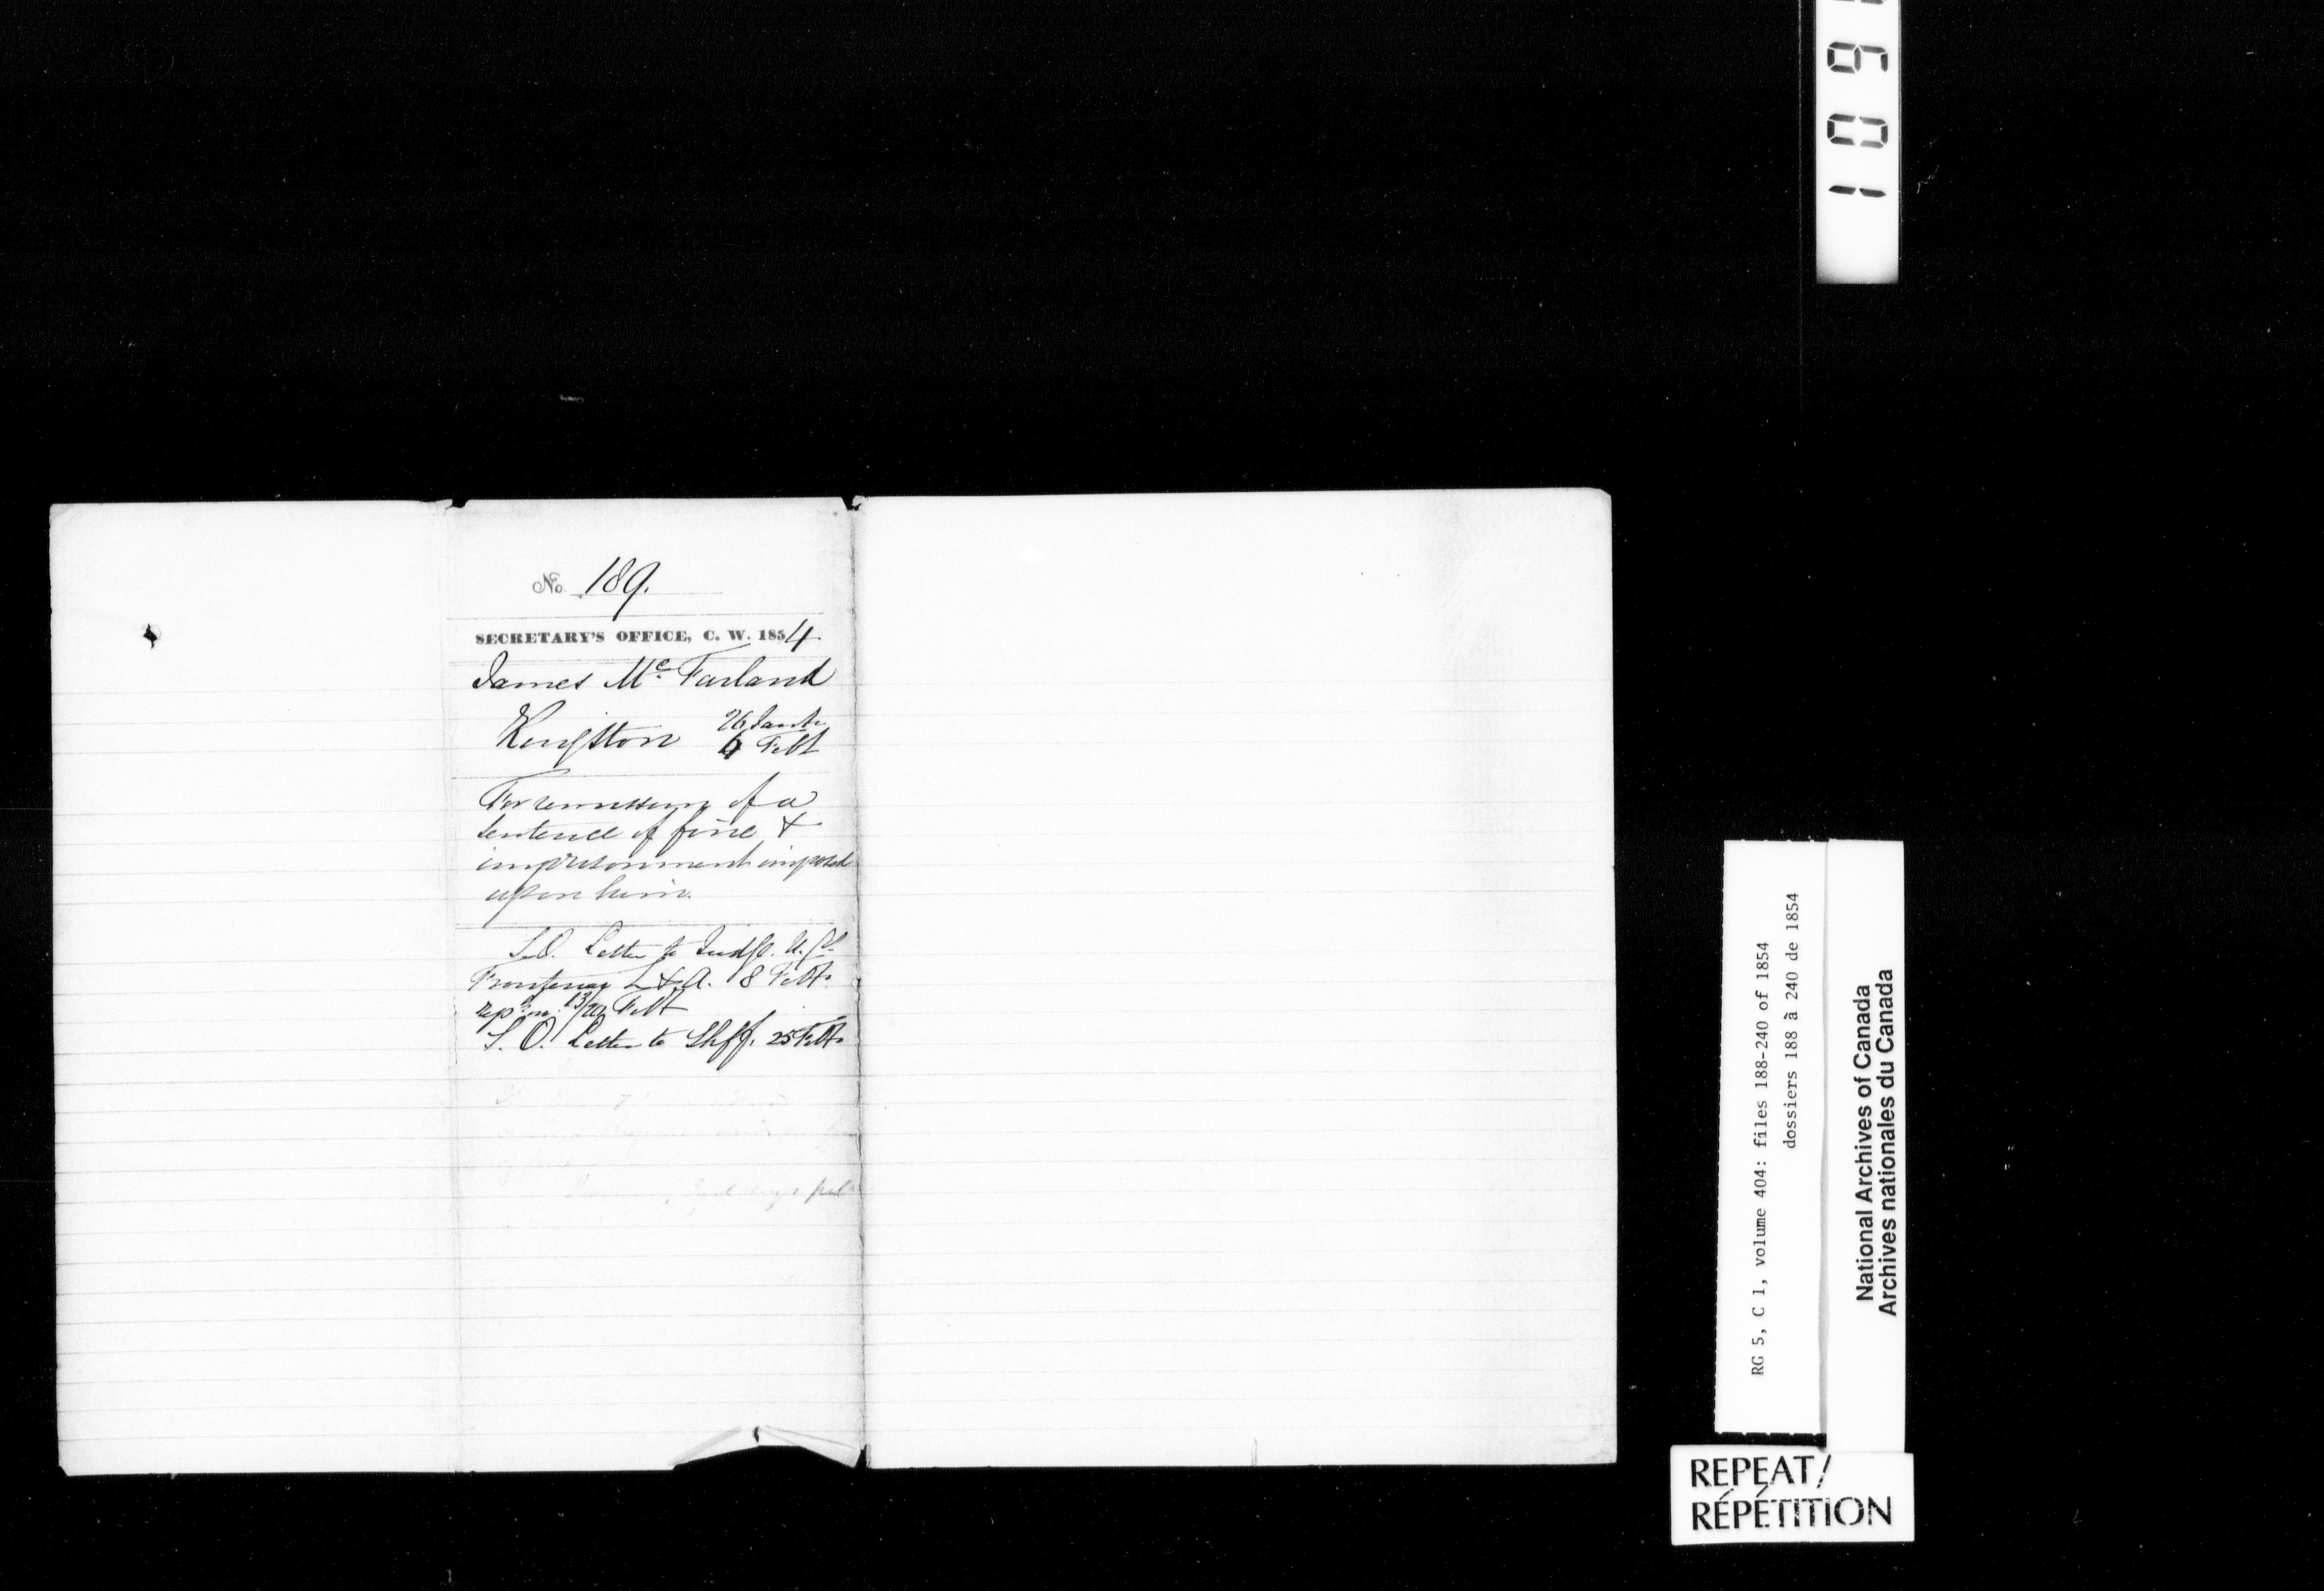 No. 189.
SECRETARY'S OFFICE, C. W. 1854
James Mc Farland
Kingston 26 Janʳʸ
6 Febʸ
For remission of a
sentence of fine &
imprisonment imposed
upon him.
S.O. Letter to Judge. U. C.
Frontenac L & A. 8 Febʸ
repᵈ in 13/20 Febʸ
S. O. Letter to Shff. 25 Febʸ
RG 5, C 1, volume 404: files 188-240 of 1854
dossiers 188 à 240 de 1854
National Archives of Canada
Archives nationales du Canada
REPEAT/
RÉPÉTITION